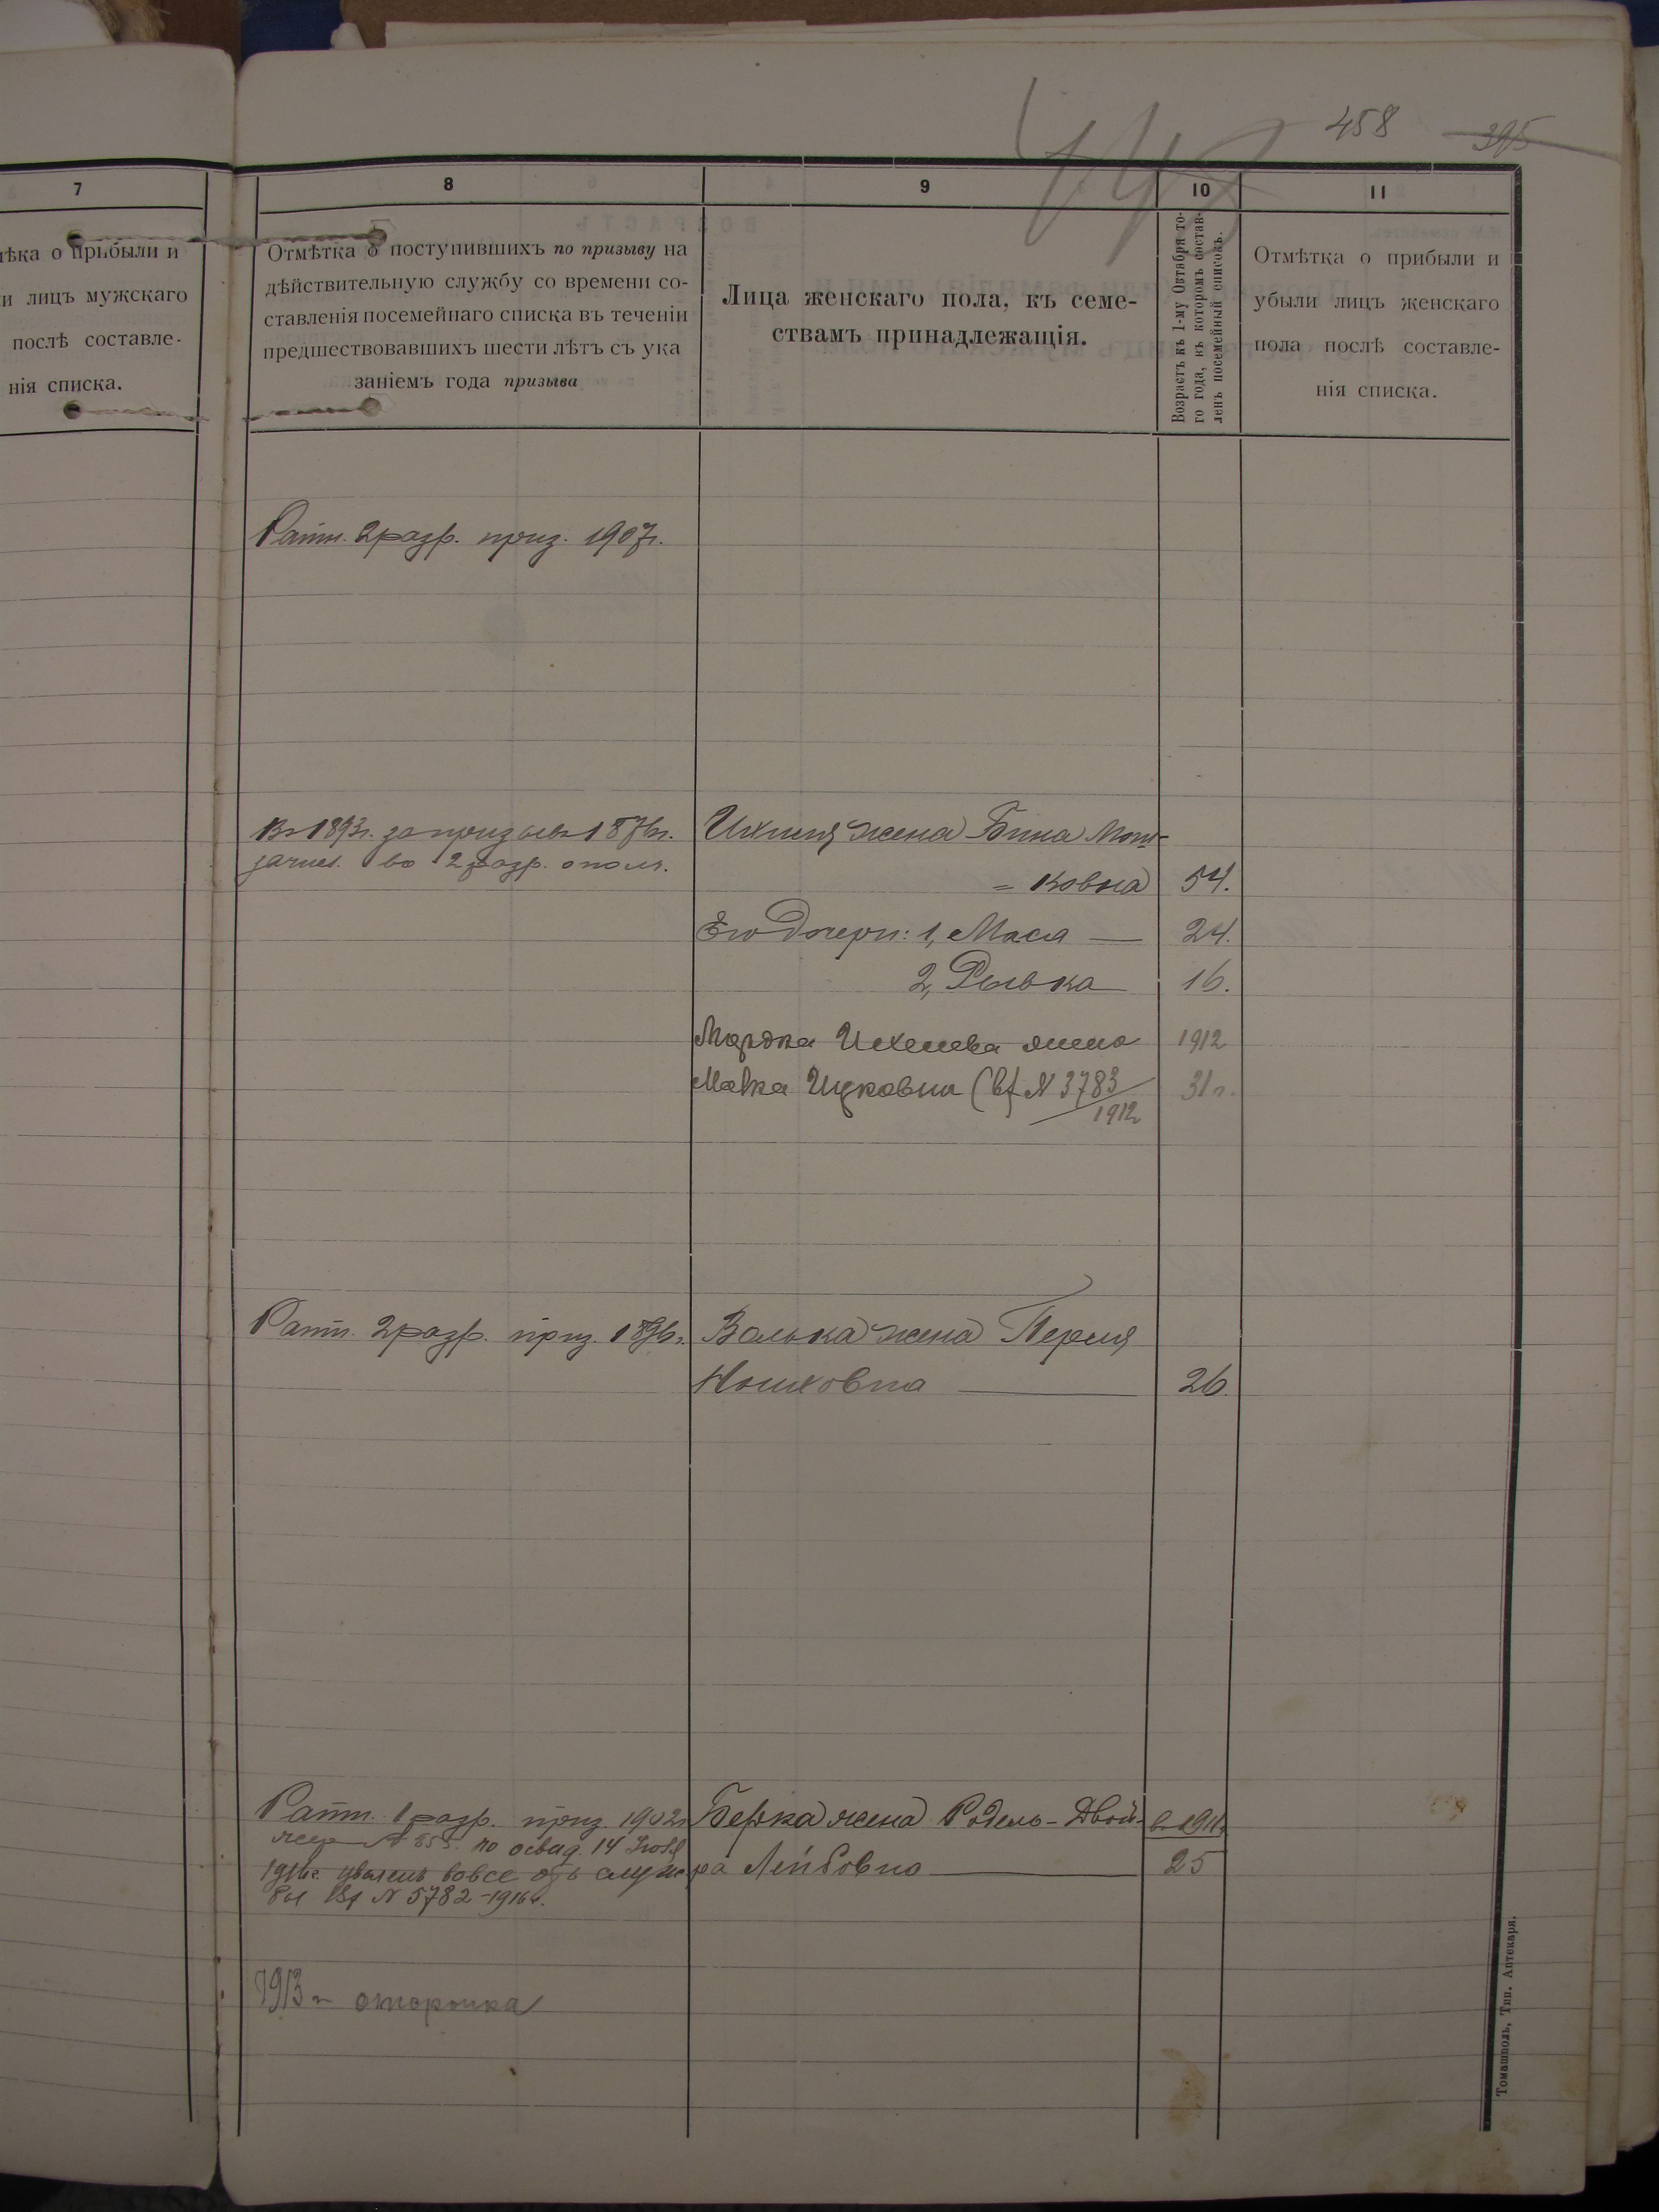 458 395
7
8
9
10
11
ѣка о прибыли и
и лицъ мужскаго
послѣ составле-
нія списка.
Отмѣтка о поступившихъ по призыву на
дѣйствительную службу со времени со-
ставленія посемейнаго списка въ теченіи
предшествовавшихъ шести лѣтъ съ ука
заніемъ года призыва
Лица женскаго пола, къ семе-
ствамъ принадлежащія.
Возрастъ къ 1-му Октября то-
го года, въ которомъ состав-
ленъ посемейный списокъ.
Отмѣтка о прибыли и
убыли лицъ женскаго
пола послѣ составле-
нія списка.
Ратн. 2 разр. приз. 1907г.
Въ 1893г. за призывъ 1876г.
зачис. во 2 разр. ополч.
жена Бина Мош-
= ковна 54.
Его дочери: 1, Мася — 24.
2, Рывка 16.
Мордка Ихелева жена 1912
Малка Ицковна (вх N 3783 31 г.
1912
Ратн. 2 разр. приз. 1896г.
Волька жена Перля
Ношковна — 26.
Ратн. 1 разр. приз. 1902г
по освид. 14 Іюня
1916г. уволенъ вовсе отъ служ
бы Вх N 5782-1916г.
Берка жена Родель-Двой- въ 1911г
ра Лейбовна — 25
1913 г отсрочка
Томашполь, Тип. Аптекаря.